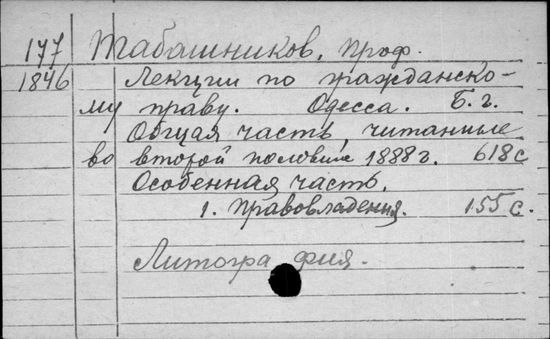 177 Табашников, проф.
1846 Лекции по гражданско-
му праву. Одесса. Б. г.
Общая часть, читанные
во второй половине 1888 г. 618 с
Особенная часть.
1. Правовладения. 155 с.
Литография.